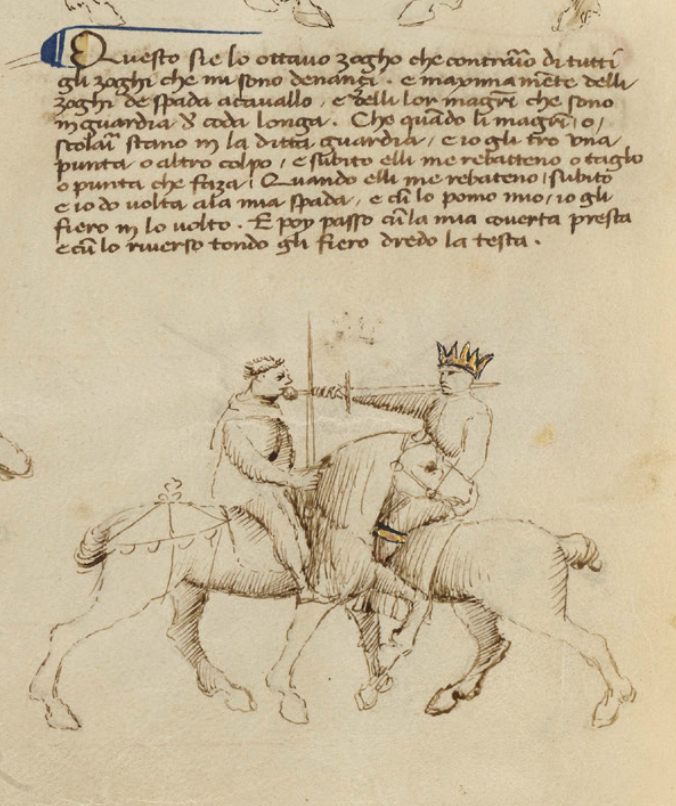 Questo sie lo ottauo zogho che contraῑo di tutti
gli zoghi che mi sono denançi . e maximamẽte delli
zoghi de spada acauallo , e delli lor magrĩ che sono
in guardia di coda longa . Che quãdo li magrĩ , o ,
scolaῑ stano in la ditta guardia , e io gli tro una
punta o altro colpo , e subito elli me rebatteno o taglo
o punta che faza , Quando elli me rebateno , subito
e io do uolta ala mia spada , e cũ lo pomo mio , io gli
fiero in lo uolto . E poy passo cũ la mia couerta presta
e cũ lo riuerso tondo gli fiero dredo la testa .